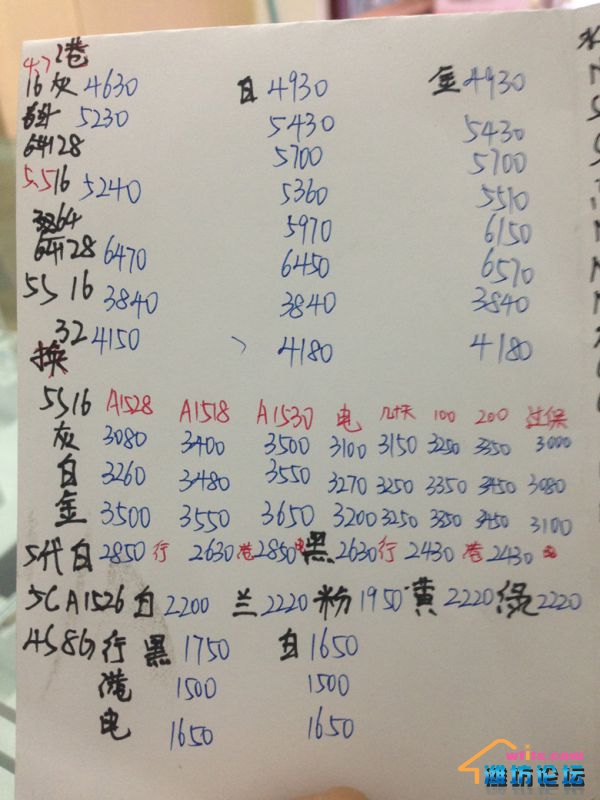 4.7 港
16 灰 4630 白 4930 金 4930
64 5230 5430 5430
64128 5700 5700
5.5 16 5240 5360 5510
64 5970 6150
64128 6470 6450 6570
5S 16 3840 3840 3840
32 4150 4180 4180
换
5S16 A1528 A1518 A1530 电 几十天 100 200 过保
灰 3080 3400 3500 3100 3150 3250 3350 3000
白 3260 3480 3550 3270 3250 3350 3450 3080
金 3500 3550 3650 3200 3250 3350 3450 3100
5代 白 2850 行 2630 港 2850 电 黑 2630 行 2430 港 2430 电
5C A1526 白 2200 兰 2220 粉 1950 黄 2220 绿 2220
4S8G 行 黑 1750 白 1650
港 1500 1500
电 1650 1650
wfits.com
潍坊论坛